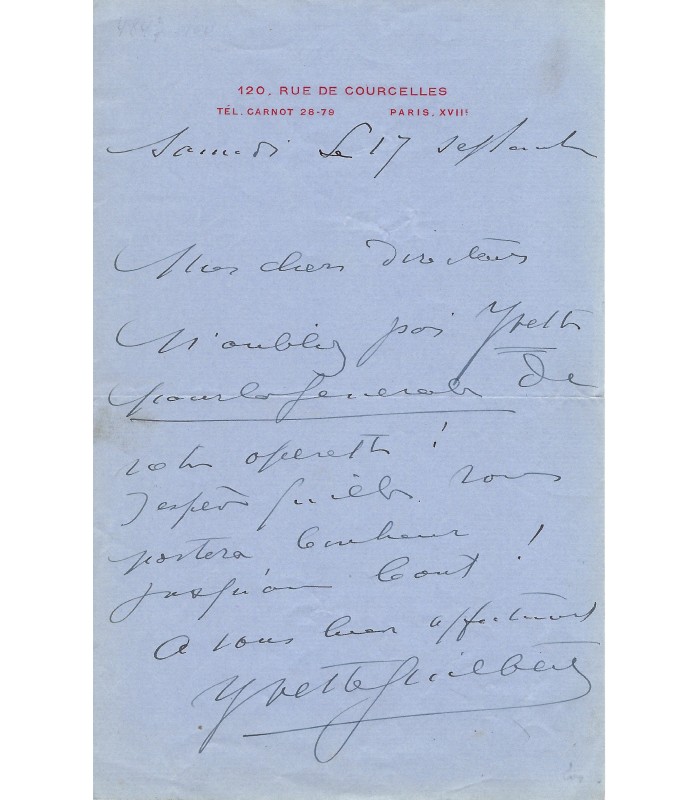 120, RUE DE COURCELLES
TÉL. CARNOT 28-79 PARIS. XVIIᵉ
Samedi le 17 septembre
Mes chers Directeurs
N'oubliez pas Yvette
pour la Generale de
votre operette !
J'espère qu'elle vous
portera bonheur
jusqu'au bout !
A vous bien affectueust
Yvette Guilbert